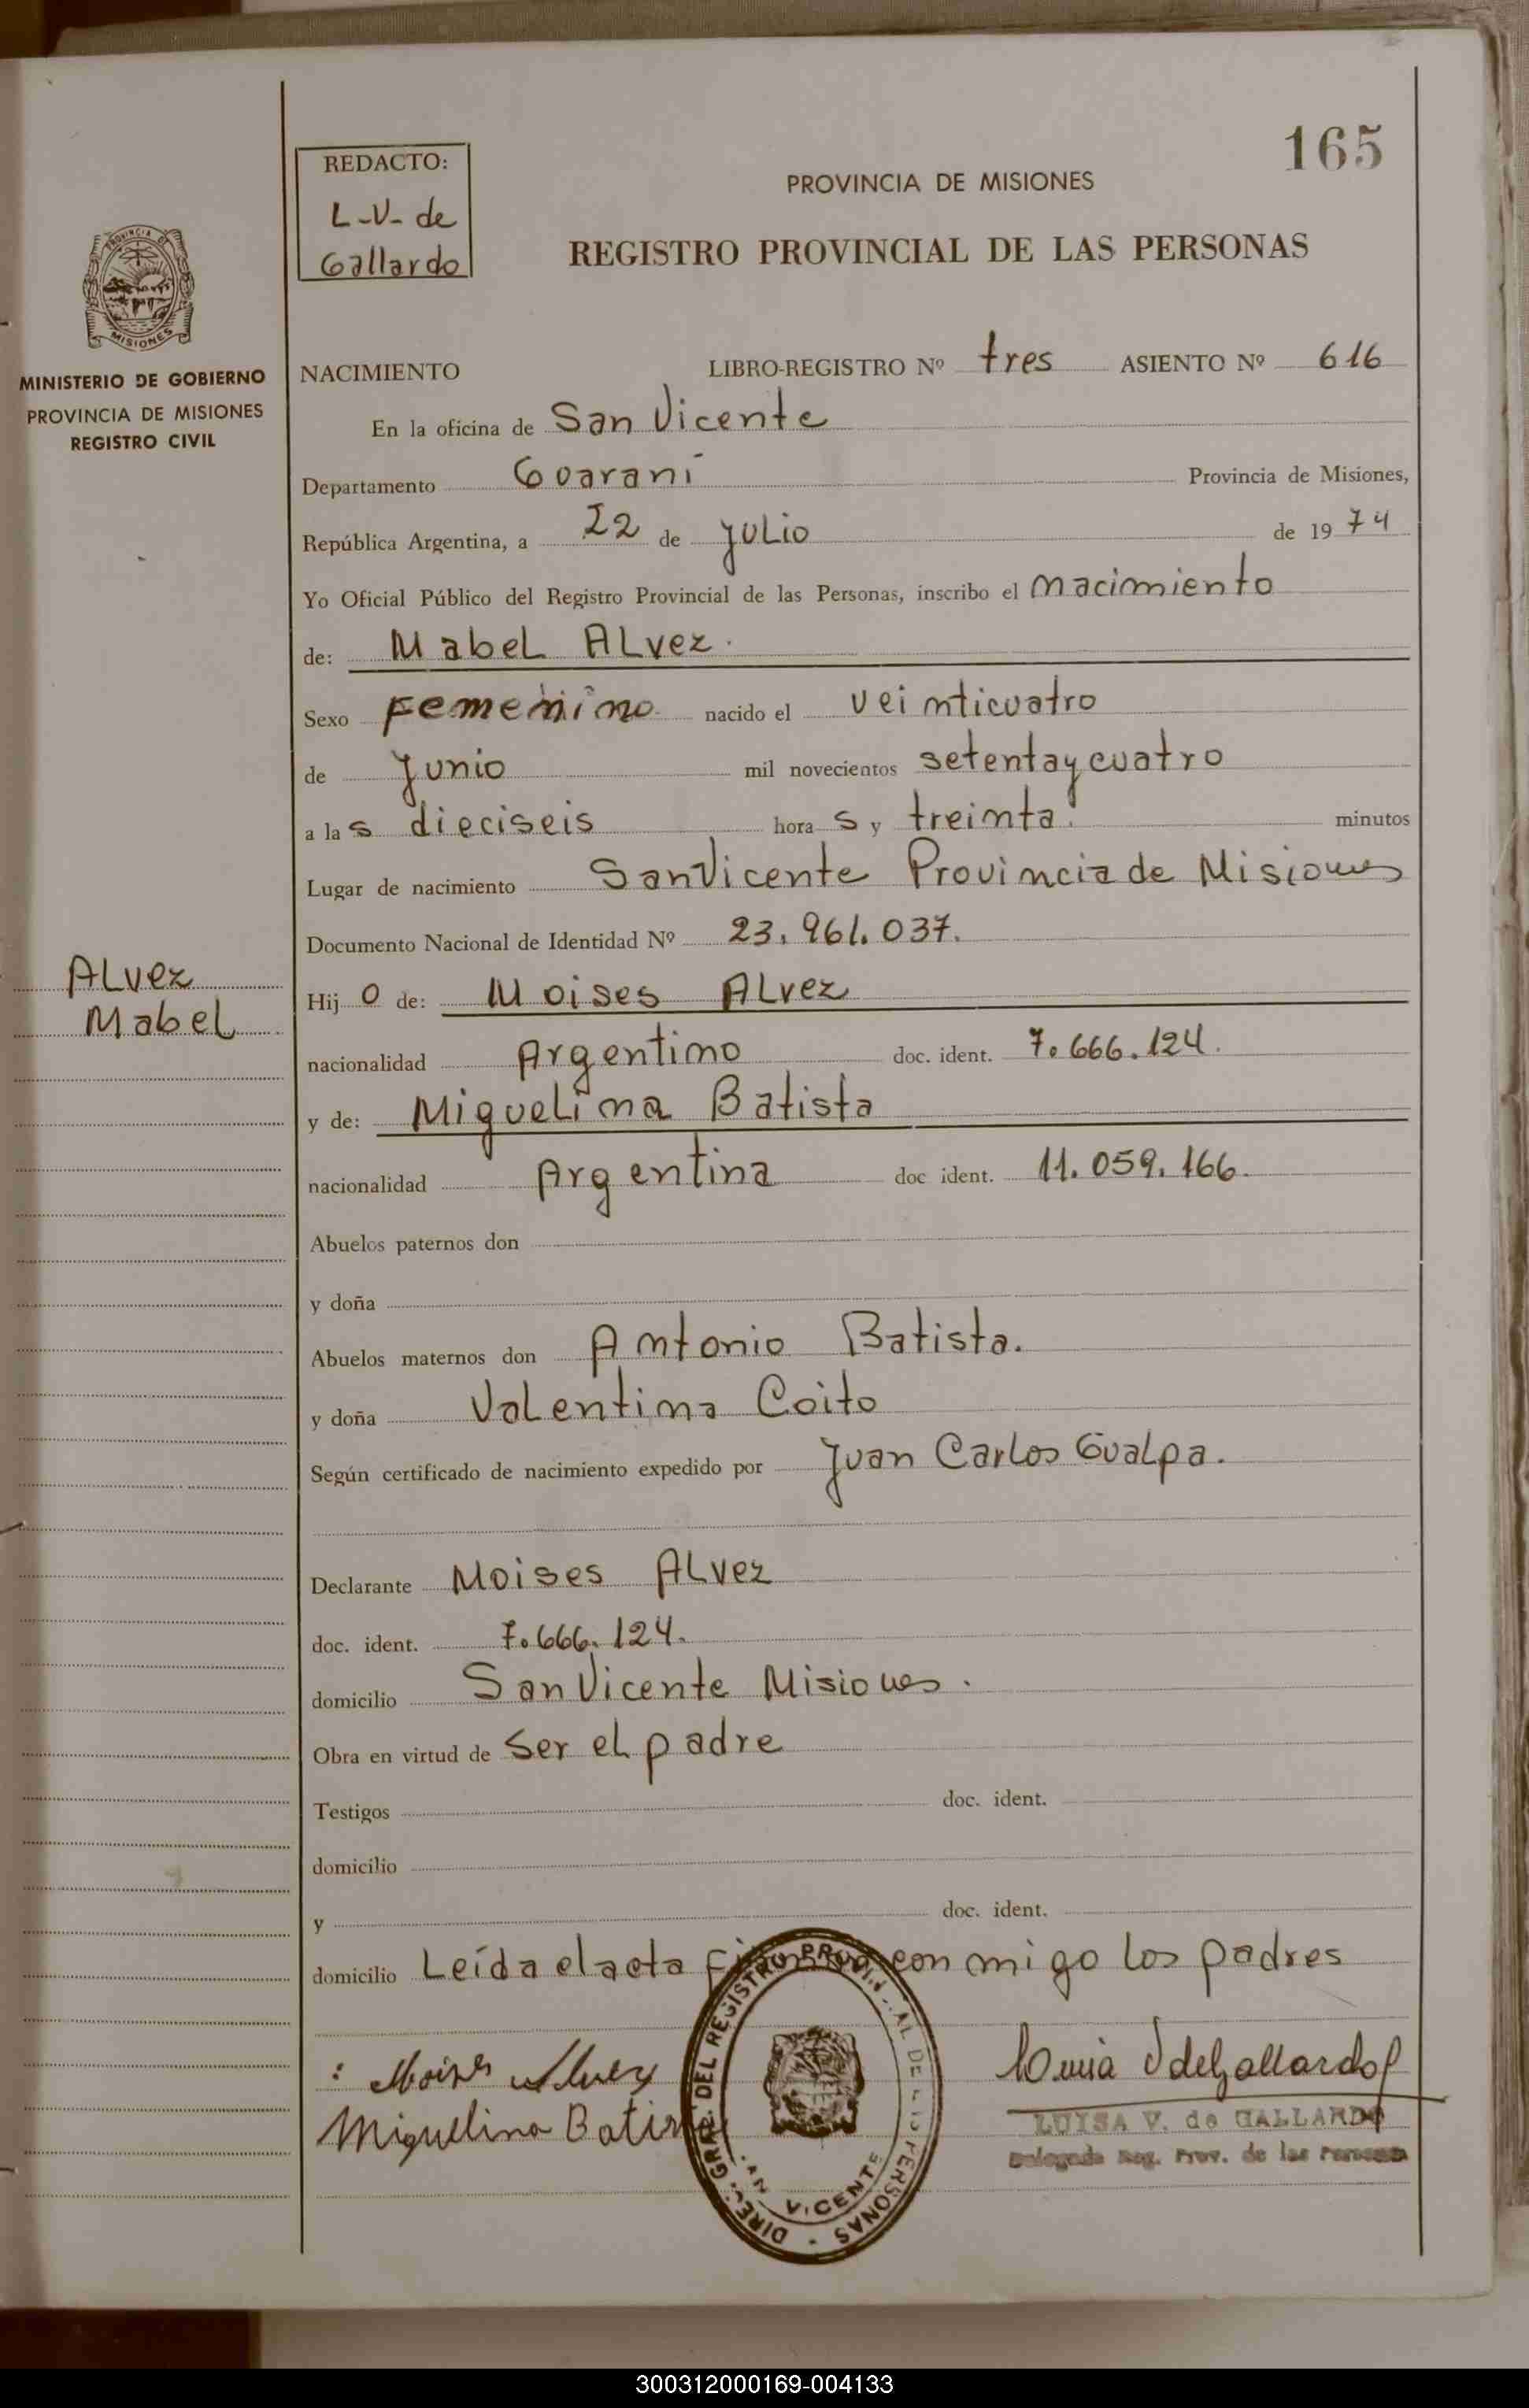 165
REDACTO:
L-V- de
Gallardo
PROVINCIA DE MISIONES
REGISTRO PROVINCIAL DE LAS PERSONAS
PROVINCIA DE
MISIONES
MINISTERIO DE GOBIERNO
PROVINCIA DE MISIONES
REGISTRO CIVIL
NACIMIENTO LIBRO-REGISTRO Nº tres ASIENTO Nº 616
En la oficina de San Vicente
Departamento Guaraní Provincia de Misiones,
República Argentina, a 22 de Julio de 1974
Yo Oficial Público del Registro Provincial de las Personas, inscribo el nacimiento
de: Mabel Alvez.
Sexo Femenino nacido el veinticuatro
de Junio mil novecientos setenta y cuatro
a las dieciseis horas y treinta. minutos
Lugar de nacimiento San Vicente Provincia de Misiones
Documento Nacional de Identidad Nº 23.961.037.
Alvez
Mabel
Hijo de: Moises Alvez
nacionalidad Argentino doc. ident. 7.666.124.
y de: Miguelina Batista
nacionalidad Argentina doc ident. 11.059.166.
Abuelos paternos don
y doña
Abuelos maternos don Antonio Batista.
y doña Valentina Coito
Según certificado de nacimiento expedido por Juan Carlos Gualpa.
Declarante Moises Alvez
doc. ident. 7.666.124.
domicilio San Vicente Misiones.
Obra en virtud de Ser el padre
Testigos doc. ident.
domicilio
y doc. ident.
domicilio Leída el acta firman con migo los padres
Moises Alvez
Miguelina Batis
DIREC. GRAL. DEL REGISTRO PROVINCIAL DE LAS PERSONAS
SAN VICENTE
Luisa V de Gallardo
LUISA V. de GALLARDO
Delegada Reg. Prov. de las Personas
300312000169-004133